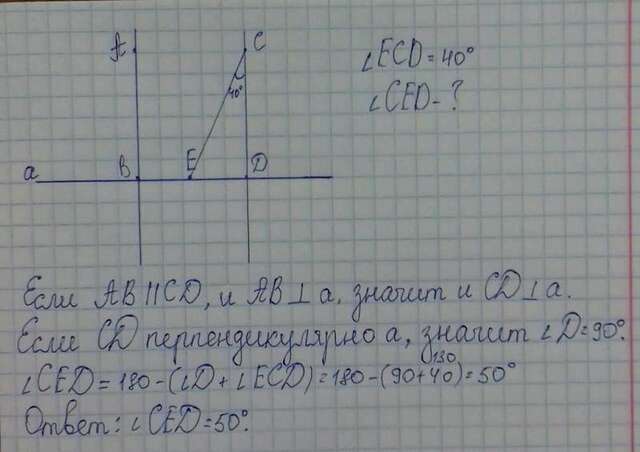 A C
∠ECD=40°
40°
∠CED-?
a B E D
Если AB||CD, и AB⊥a, значит и CD⊥a.
Если CD перпендикулярно a, значит ∠D=90°.
130
∠CED=180-(∠D+∠ECD)=180-(90+40)=50°
Ответ: ∠CED=50°.